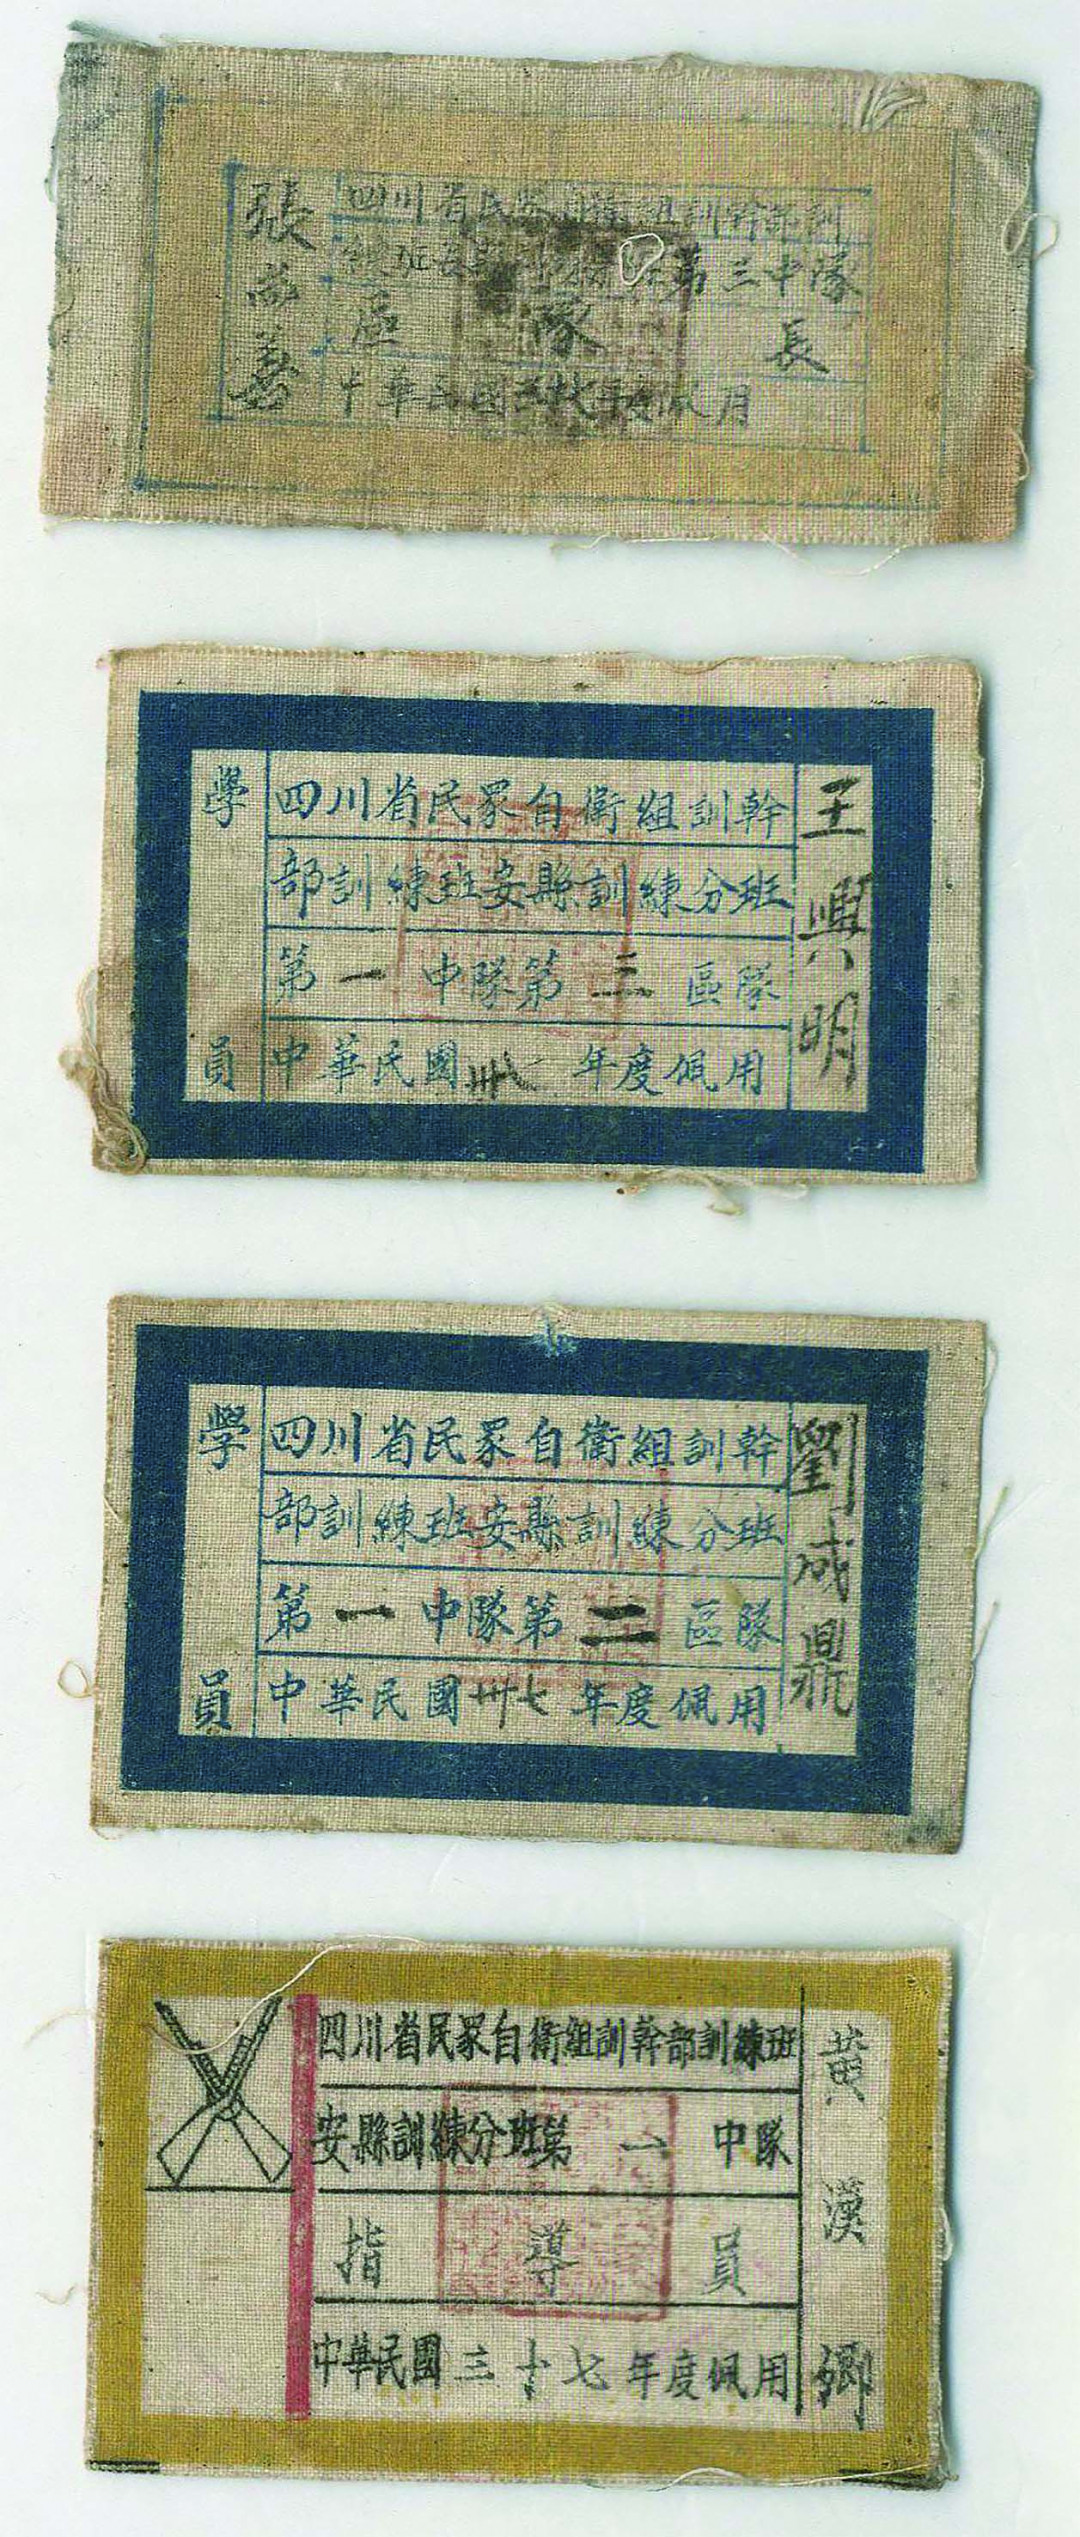 張
善
四川省民眾自衛組訓幹部訓
練班安縣訓練分班第三中隊
區隊長
中華民國三十七年度佩用
學員
四川省民眾自衛組訓幹
部訓練班安縣訓練分班
第一中隊第三區隊
中華民國卅七年度佩用
王興明
學員
四川省民眾自衛組訓幹
部訓練班安縣訓練分班
第一中隊第二區隊
中華民國卅七年度佩用
劉成鼎
四川省民眾自衛組訓幹部訓練班
安縣訓練分班第一中隊
指導員
中華民國三十七年度佩用
黃漢卿